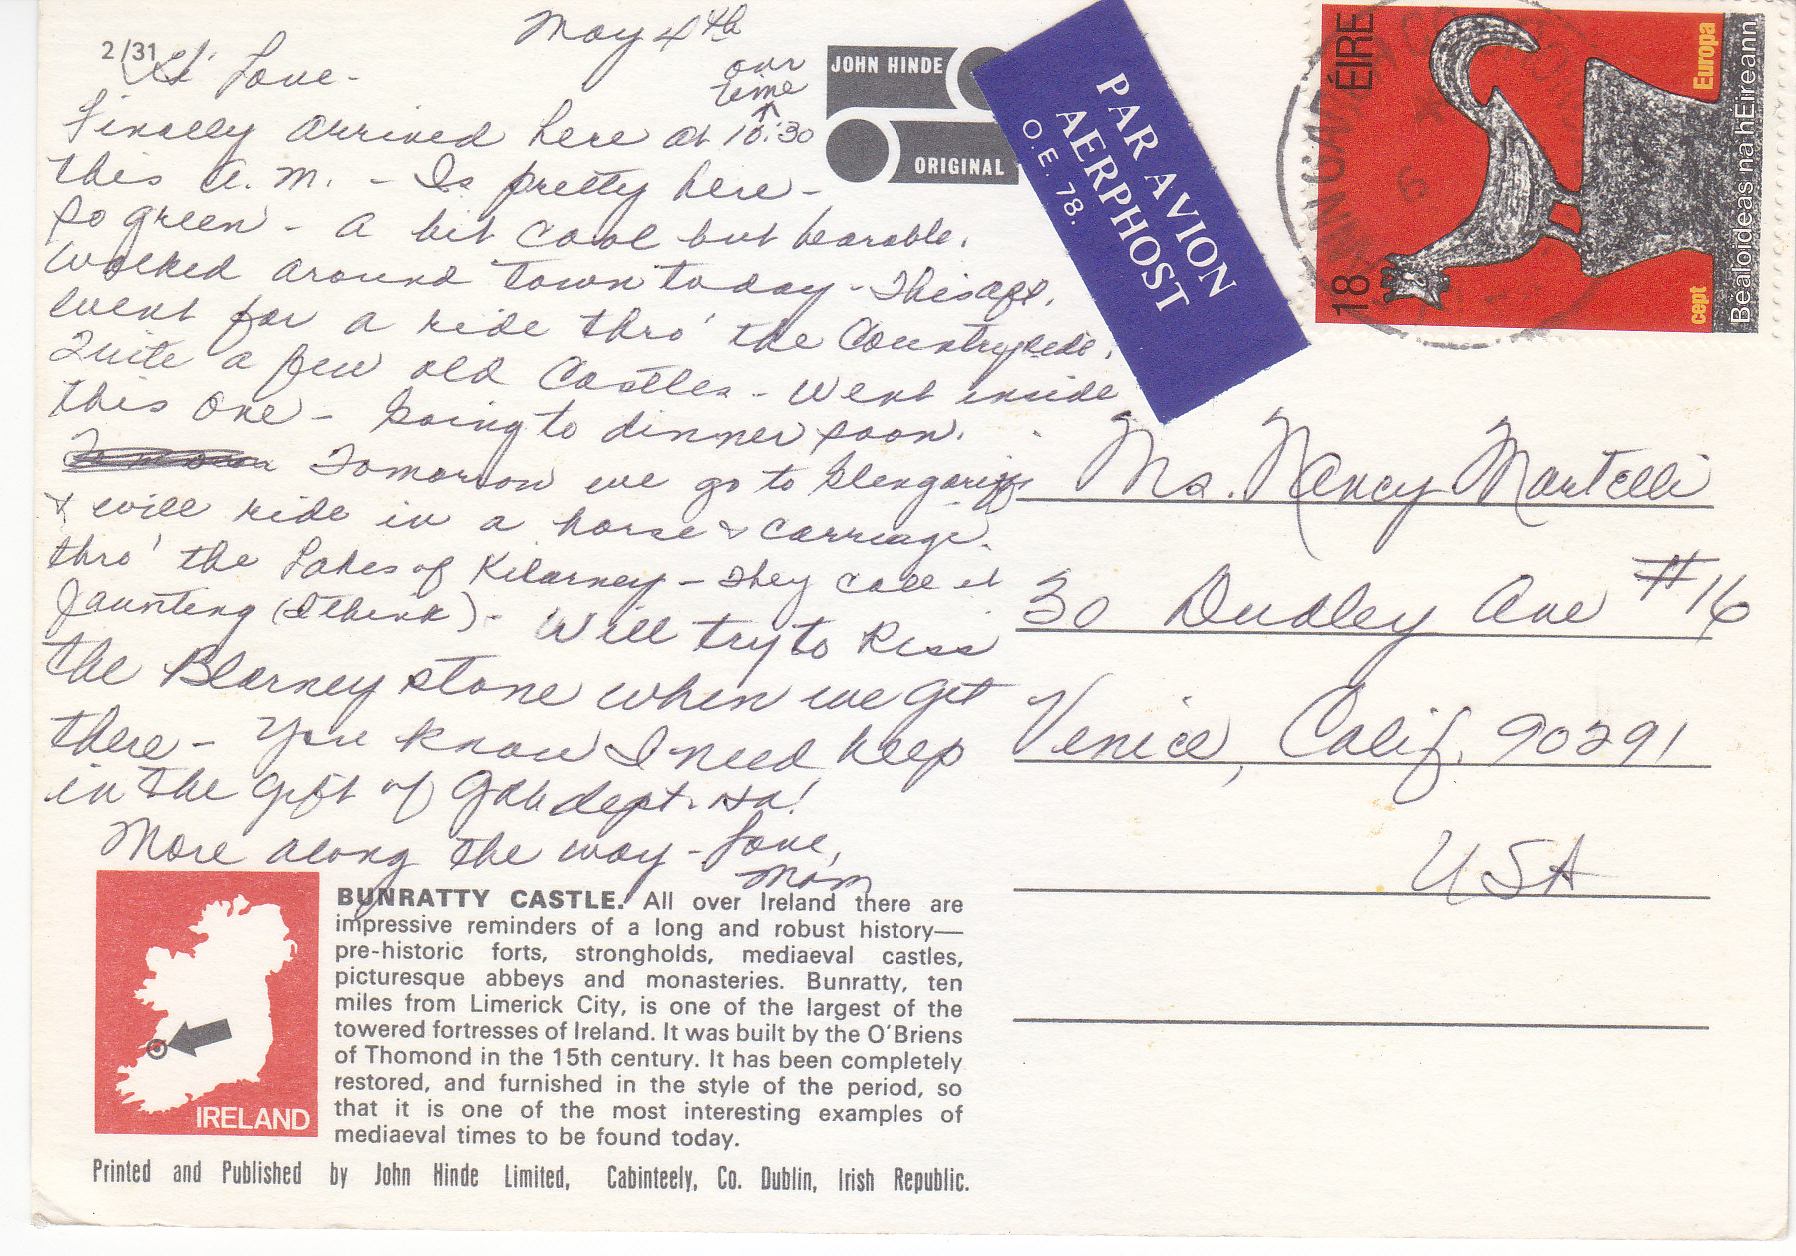 2/31
May 4th
Hi Love -
our
time
Finally arrived here at 10:30
this a.m. - Is pretty here -
So green - A bit cool but bearable.
Walked around town today - This aft.
went for a ride thro' the Countryside.
Quite a few old Castles - Went inside
this one - Going to dinner soon.
Tomorrow we go to Glengariff
& will ride in a horse & carriage
thro' the Lakes of Kilarney - They call it
Jaunting (I think) - Will try to Kiss
the Blarney stone when we get
there - You know I need help
in the gift of gab dept. Ha!
More along the way - Love,
Mom
JOHN HINDE
ORIGINAL
PAR AVION
AERPHOST
O.E. 78.
ÉIRE
18
Europa
cept
Béaloideas na hÉireann
Ms. Nancy Martelli
30 Dudley Ave #16
Venice, Calif. 90291
USA
IRELAND
BUNRATTY CASTLE. All over Ireland there are
impressive reminders of a long and robust history—
pre-historic forts, strongholds, mediaeval castles,
picturesque abbeys and monasteries. Bunratty, ten
miles from Limerick City, is one of the largest of the
towered fortresses of Ireland. It was built by the O'Briens
of Thomond in the 15th century. It has been completely
restored, and furnished in the style of the period, so
that it is one of the most interesting examples of
mediaeval times to be found today.
Printed and Published by John Hinde Limited, Cabinteely, Co. Dublin, Irish Republic.